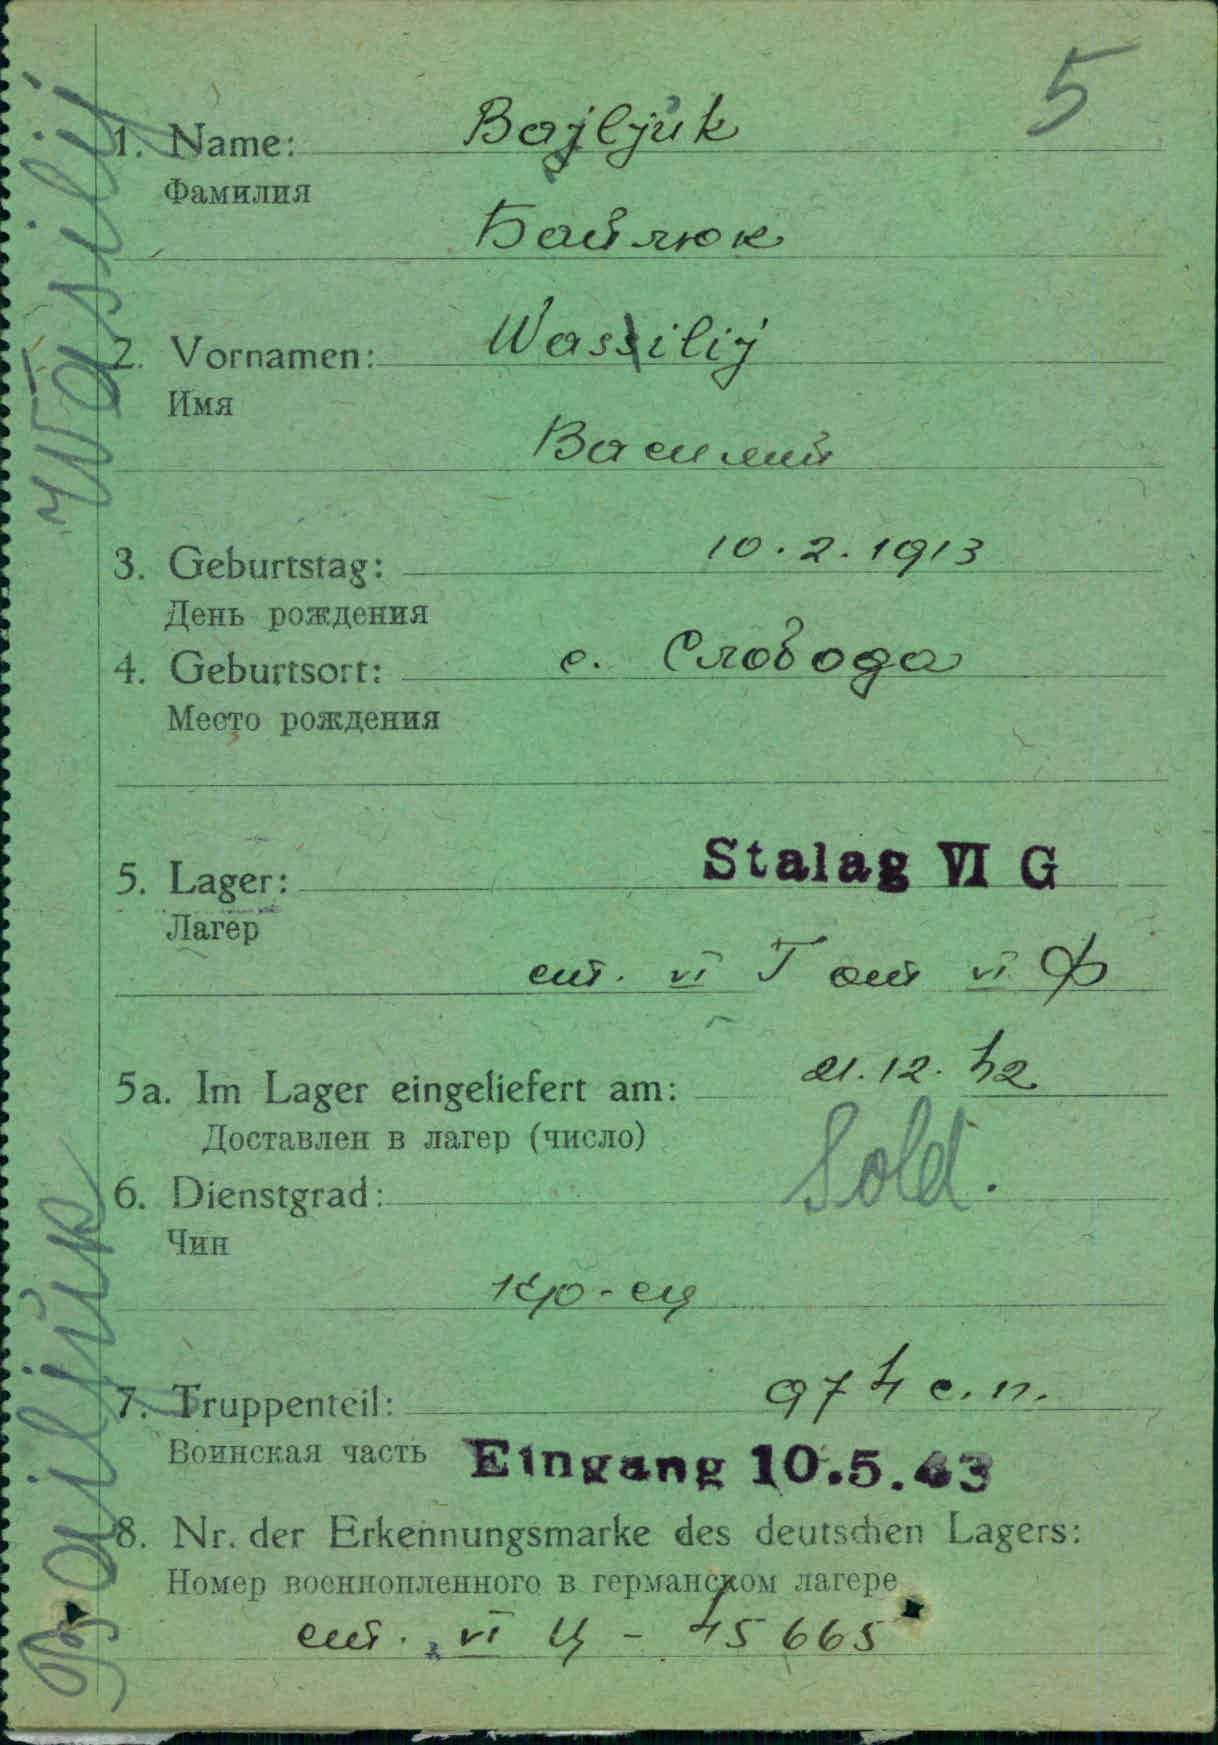 5
1. Name: Bajljuk
Фамилия
Байлюк
2. Vornamen: Wassilij
Имя
Василий
3. Geburtstag: 10.2.1913
День рождения
4. Geburtsort: с. Слобода
Место рождения
5. Lager: Stalag VI G
Лагер
шт. VI Г от VI Ф
5a. Im Lager eingeliefert am: 21.12.42
Доставлен в лагер (число)
6. Dienstgrad: Sold.
Чин
кр-ец
7. Truppenteil: 974 с.п.
Воинская часть Eingang 10.5.43
8. Nr. der Erkennungsmarke des deutschen Lagers:
Номер военнопленного в германском лагере
шт. VI Ц - 45665
Bailjuk Wasilij